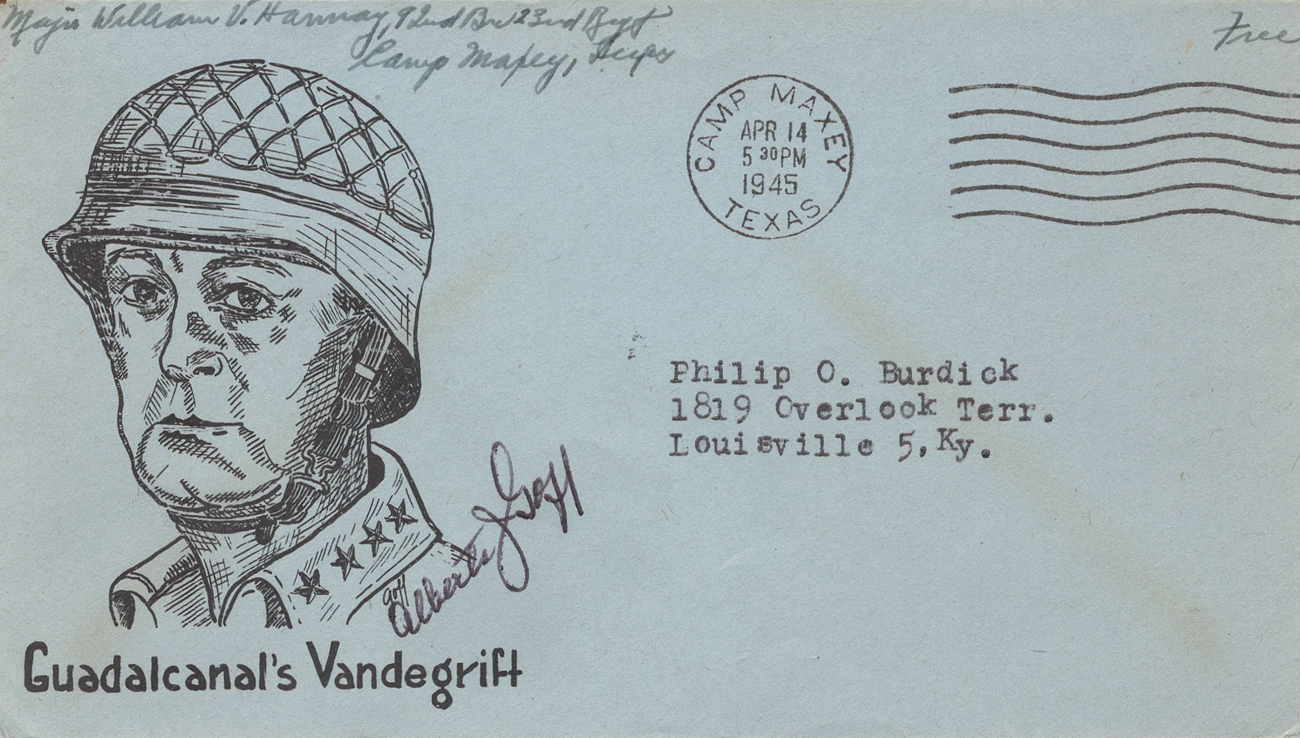 Major William V. Hannay, 92nd Bn 23rd Regt
Camp Maxey, Texas
Free
CAMP MAXEY
APR 14
5 30 PM
1945
TEXAS
Philip O. Burdick
1819 Overlook Terr.
Louisville 5, Ky.
Albert J Goff
Guadalcanal's Vandegrift